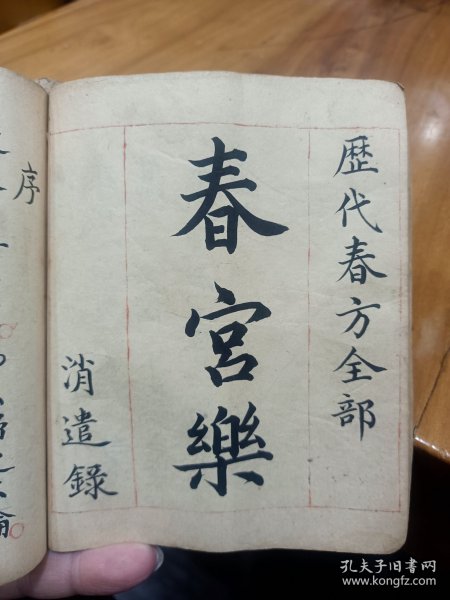 歷代春方全部
春宮樂
消遣錄
序
孔夫子旧书网
www.kongfz.com